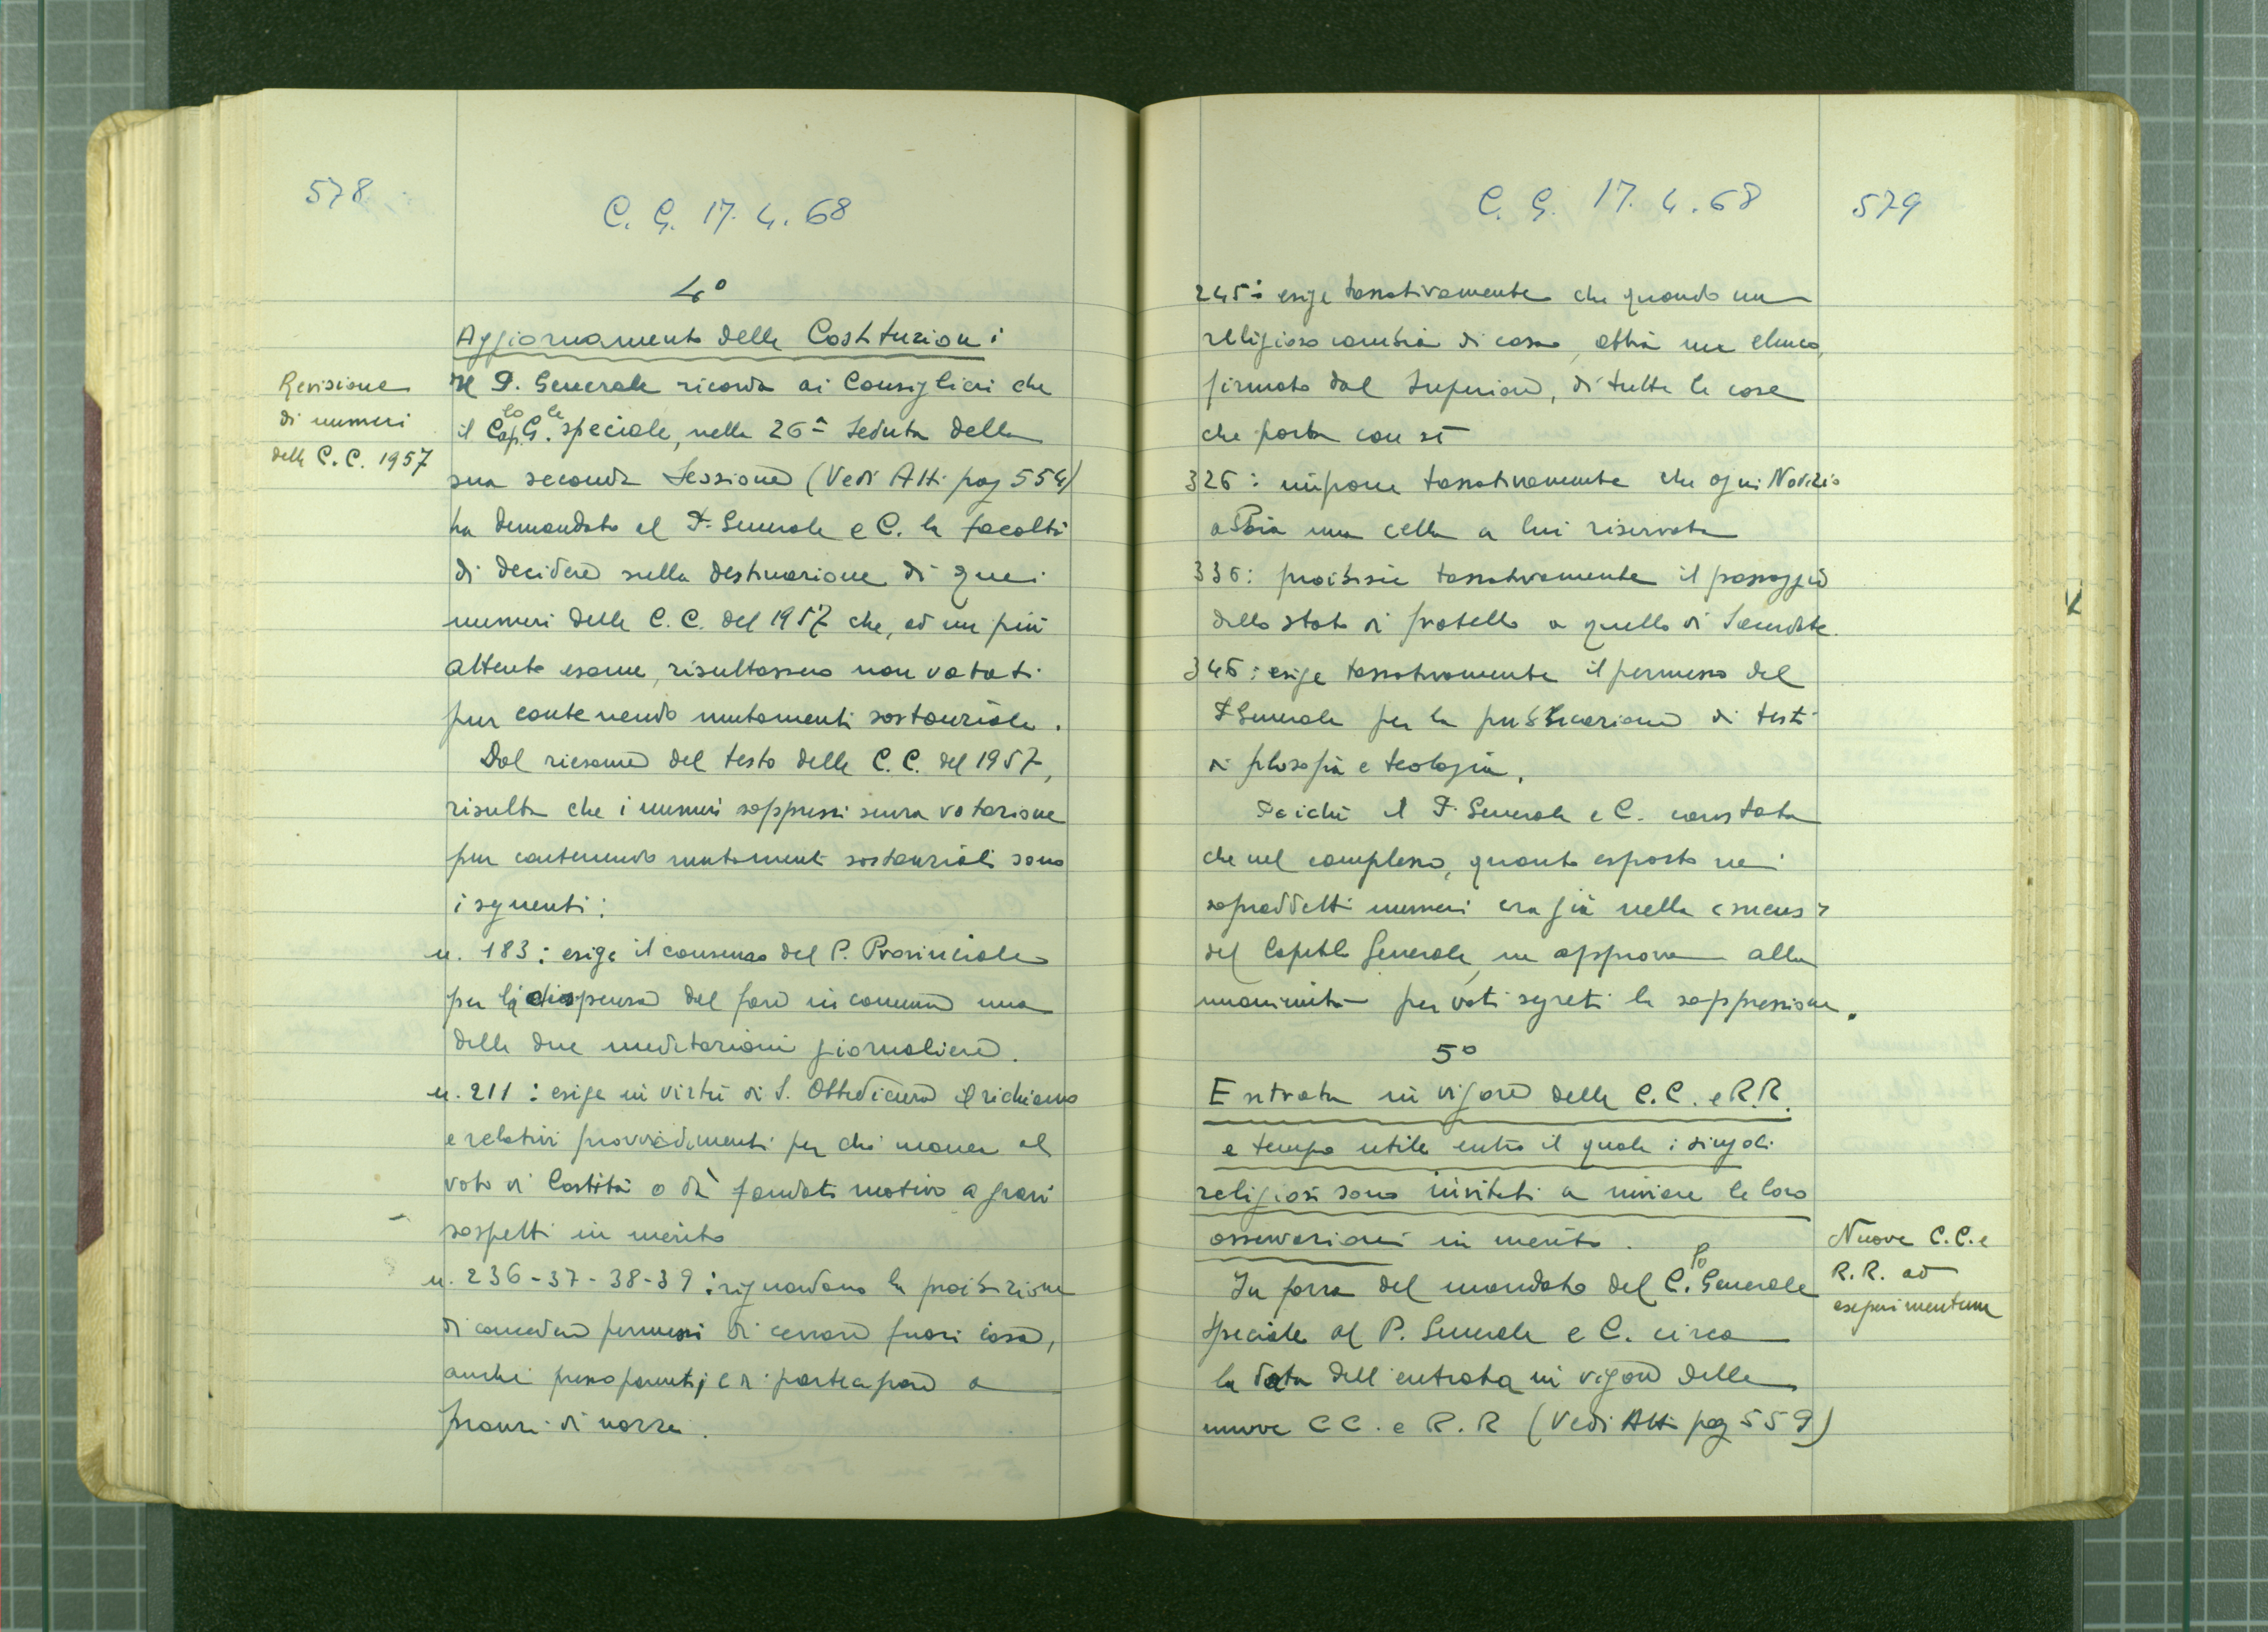 578
C. G. 17. 4. 68
4°
Aggiornamento delle Costituzioni
Revisione
di numeri
delle C.C. 1957
Il P. Generale ricorda ai Consiglieri che
il Cap.lo G.le speciale, nella 26ª seduta della
sua seconda Sessione (Vedi Atti pag 554)
ha demandato al P. Generale e C. la facoltà
di decidere sulla destinazione di quei
numeri delle C.C. del 1957 che, ad un più
attento esame, risultassero non votati
pur contenendo mutamenti sostanziali.
Dal riesame del testo delle C.C. del 1957,
risulta che i numeri soppressi senza votazione
pur contenendo mutamenti sostanziali sono
i seguenti:
n. 183: esige il consenso del P. Provinciale
per la dispensa del fare in comune una
delle due meditazioni giornaliere.
n. 211: esige in virtù di S. Obbedienza il richiamo
e relativi provvedimenti per chi manca al
voto di Castità o dà fondati motivo a gravi
sospetti in merito
n. 236-37-38-39: riguardano la proibizione
di concedere permessi di cenare fuori casa,
anche presso parenti, e di partecipare a
pranzi di nozze.
C. G. 17. 4. 68
579
245: esige tassativamente che quando un
religioso cambia di casa, abbia un elenco,
firmato dal Superiore, di tutte le cose
che porta con sé
326: impone tassativamente che ogni Novizio
abbia una cella a lui riservata
336: proibisce tassativamente il passaggio
dallo stato di fratello a quello di Sacerdote.
346: esige tassativamente il permesso del
P. Generale per la pubblicazione di testi
di filosofia e teologia.
Poiché il P. Generale e C. constata
che nel complesso, quanto esposto nei
sopraddetti numeri era già nella mens
del Capitolo Generale, ne approva alla
unanimità per voti segreti la soppressione.
5°
Entrata in vigore delle C.C. e R.R.
e tempo utile entro il quale i singoli
religiosi sono invitati a inviare le loro
osservazioni in merito.
Nuove C.C. e
R.R. ad
esperimentum
In forza del mandato del C.lo Generale
Speciale al P. Generale e C. circa
la data dell'entrata in vigore delle
nuove CC. e R.R (Vedi Atti pag 559)